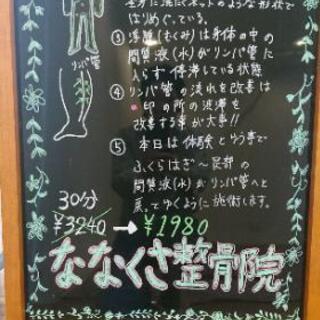 全身に流れネットのような形状で
はりめぐっている。
③ 浮腫(むくみ)は身体の中の
間質液(水)がリンパ管に
入らず停滞している状態
④ リンパの流れを改善は
印の所の渋滞を
改善する事が大事!!
⑤ 本日は体験という事で
ふくらはぎ〜足部の
間質液(水)がリンパ管へと
戻ってゆくように施術します。
リンパ管
30分
¥3240→¥1980
ななくさ整骨院